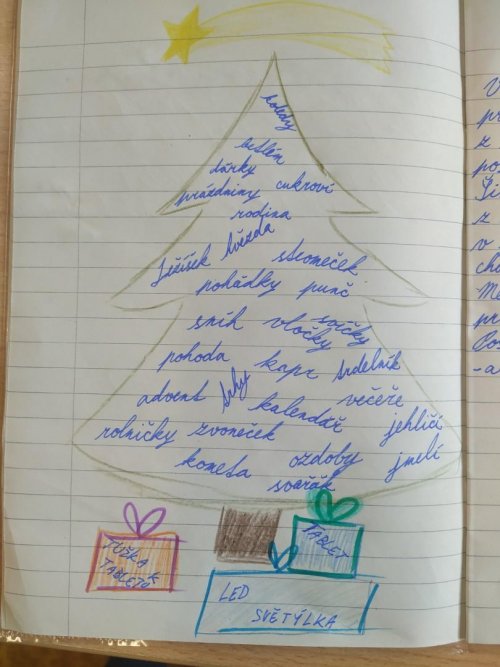 koledy
betlém
dárky
prázdniny cukroví
rodina
Ježíšek hvězda stromeček
pohádky punč
sníh vločky svíčky
pohoda kapr trdelník
advent trhy kalendář večeře
rolničky zvoneček jehličí
kometa ozdoby jmelí
svařák
TUŽKA K
TABLETU
TABLET
LED
SVĚTÝLKA